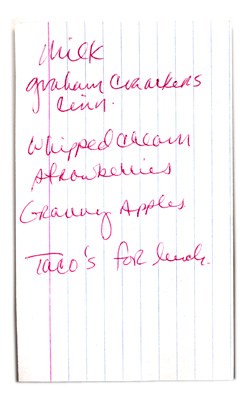 Milk
graham crackers
cinn.
Whipped cream
strawberries
Granny Apples
Taco's for lunch.